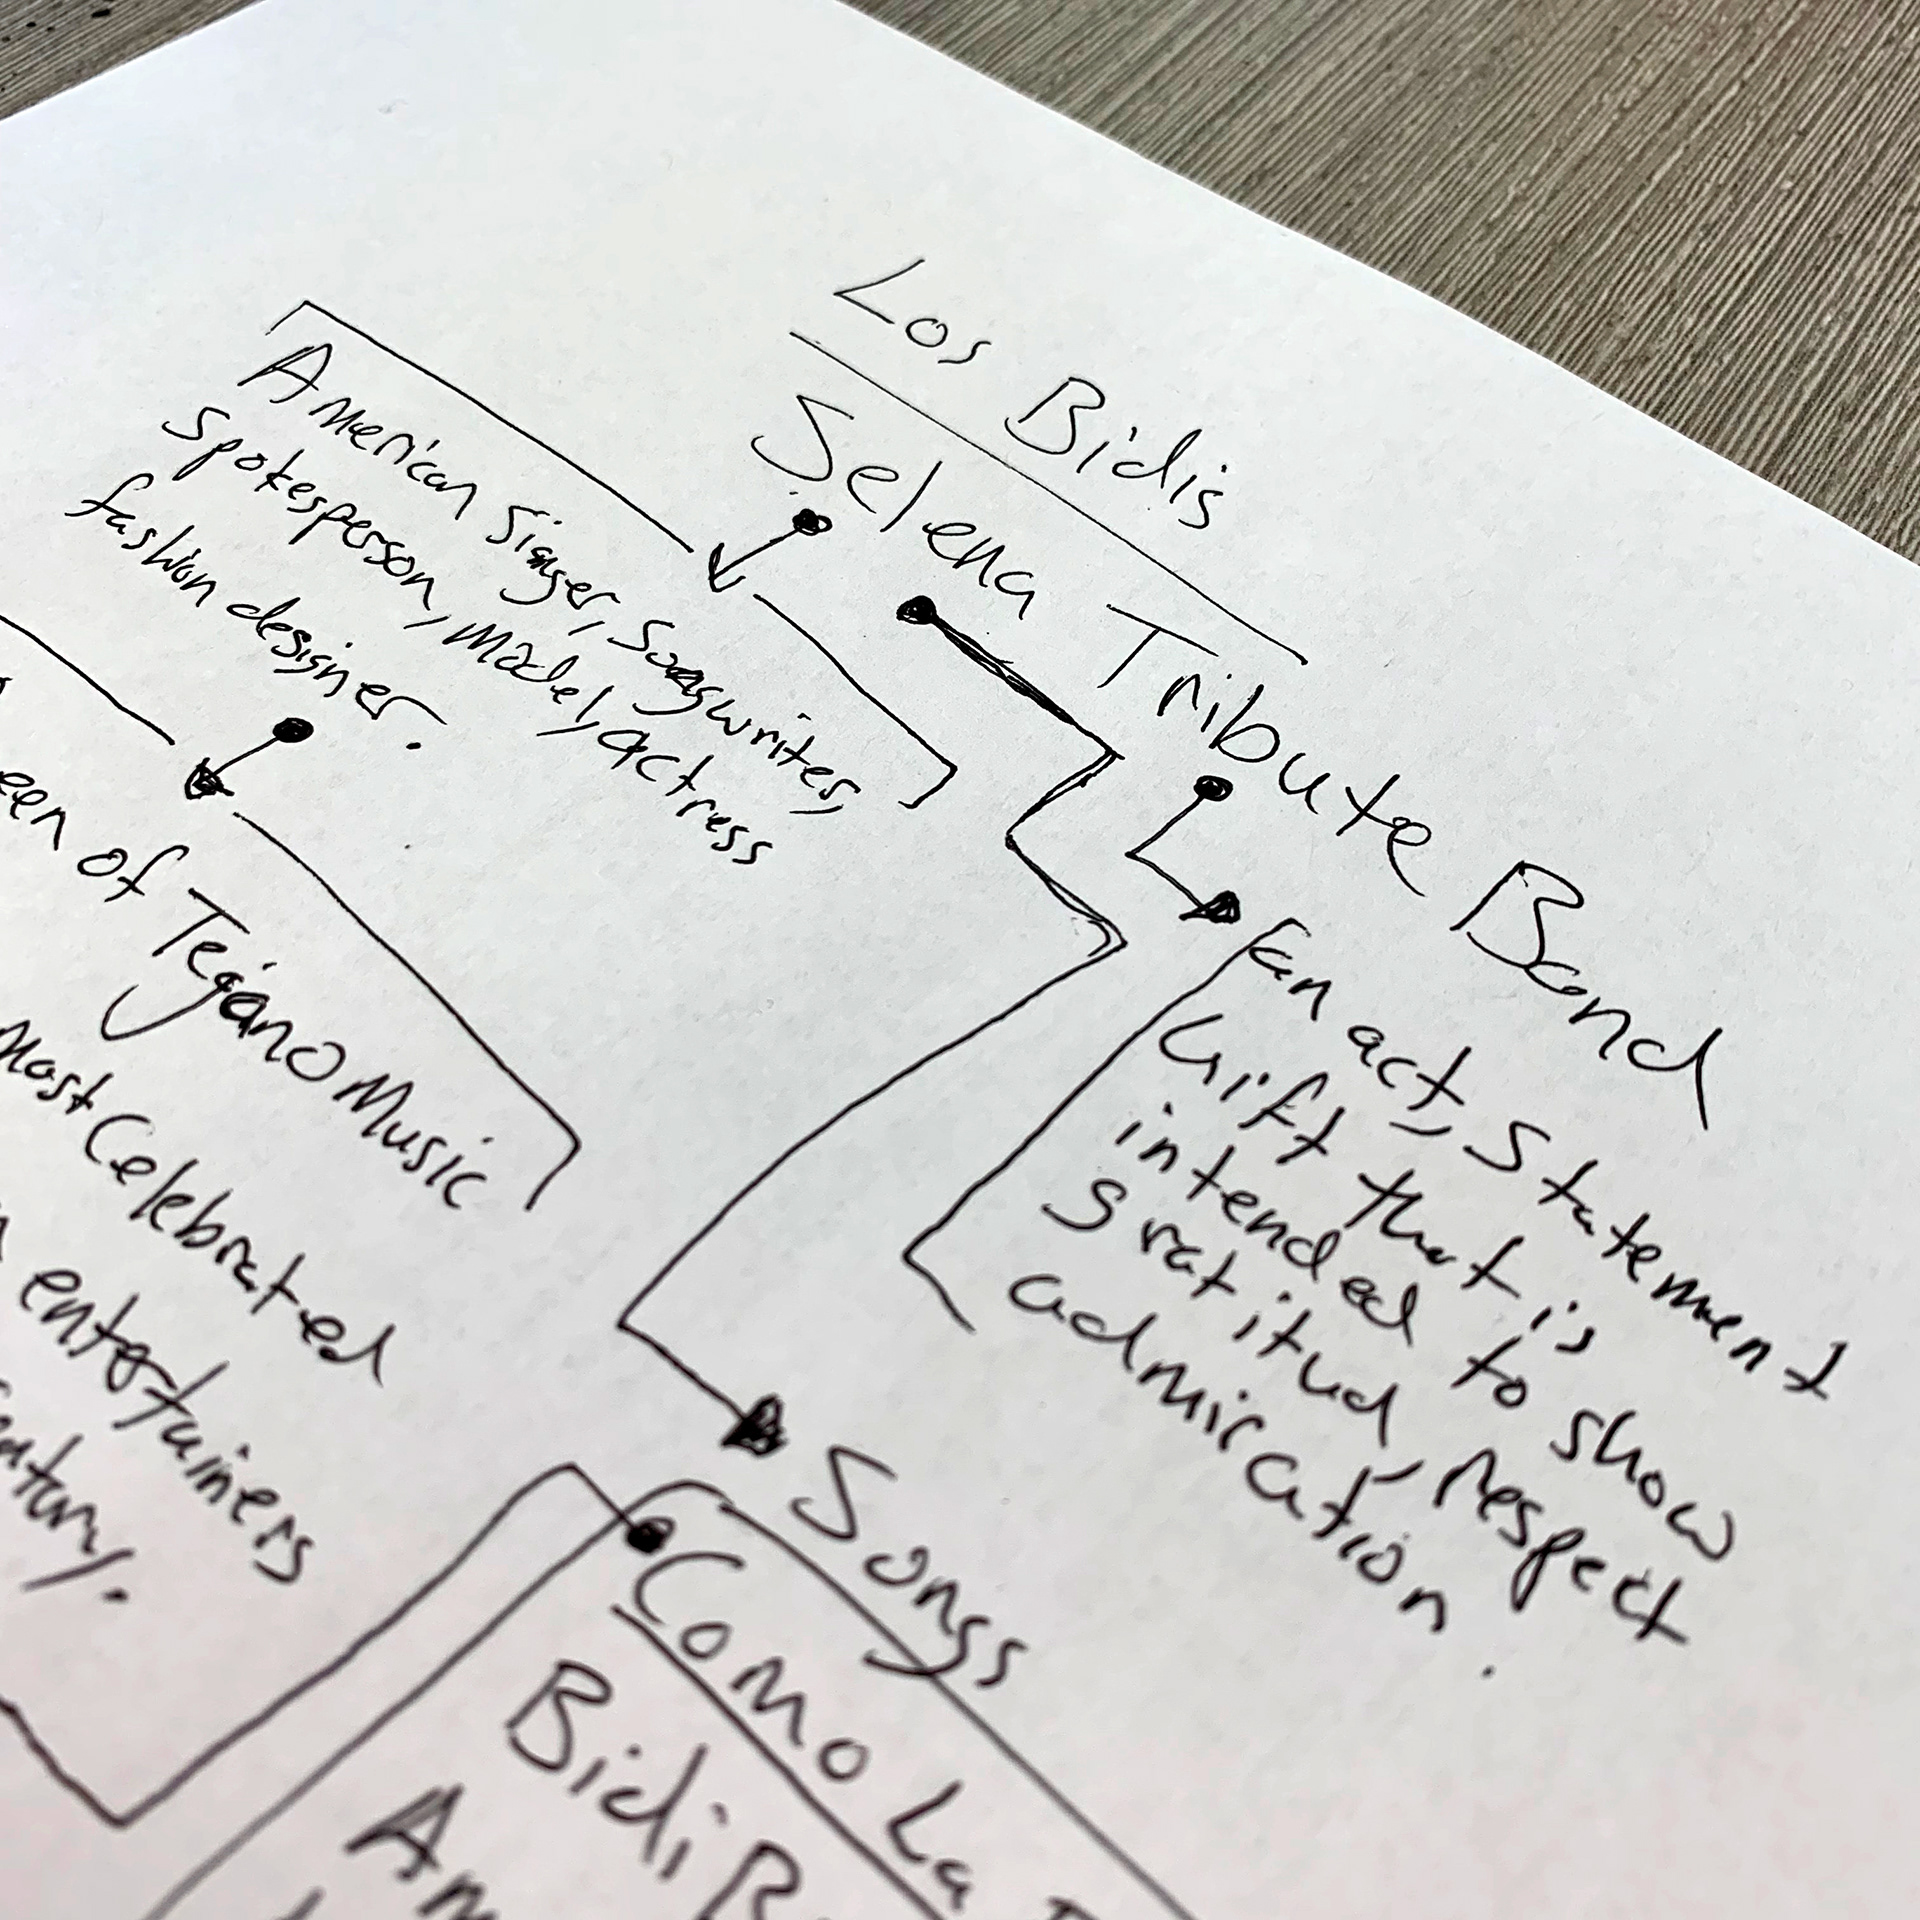 Los Bidis
Selena Tribute Band
American Singer, Songwriter,
Spokesperson, Model, actress
fashion designer.
een of Tejano Music
Most Celebrated
entertainers
an act, Statement
Gift that is
intended to show
gratitud, respect
admiration.
Songs
Como La
Bidi B
Am